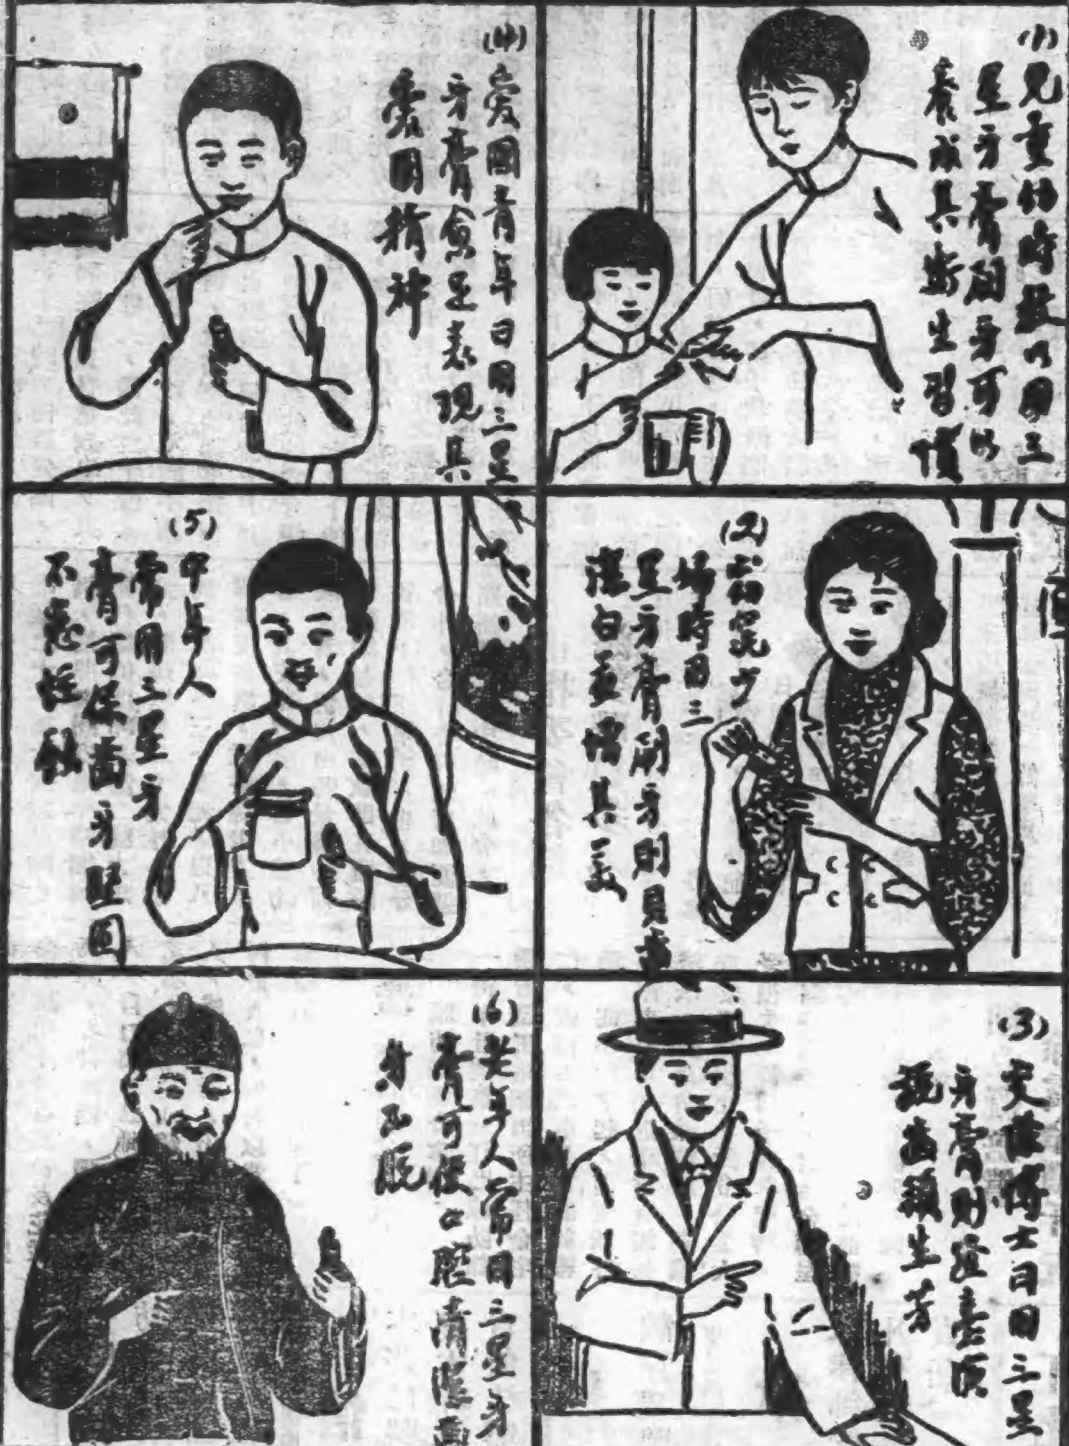 (1) 兒童幼時教以用三
星牙膏刷牙可以
養成其衛生習慣
(2)
婦時用三
星牙膏刷牙則見齒
潔白益增其美
(3) 文博士日用三星
牙膏則
說齒頰生芳
(4) 愛國青年日用三星
牙膏愈足表現其
愛國精神
(5) 中年人
常用三星牙
膏可保齒牙堅固
不患怪
(6) 老年人常用三星牙
膏可使口腔清潔齒
牙不脫